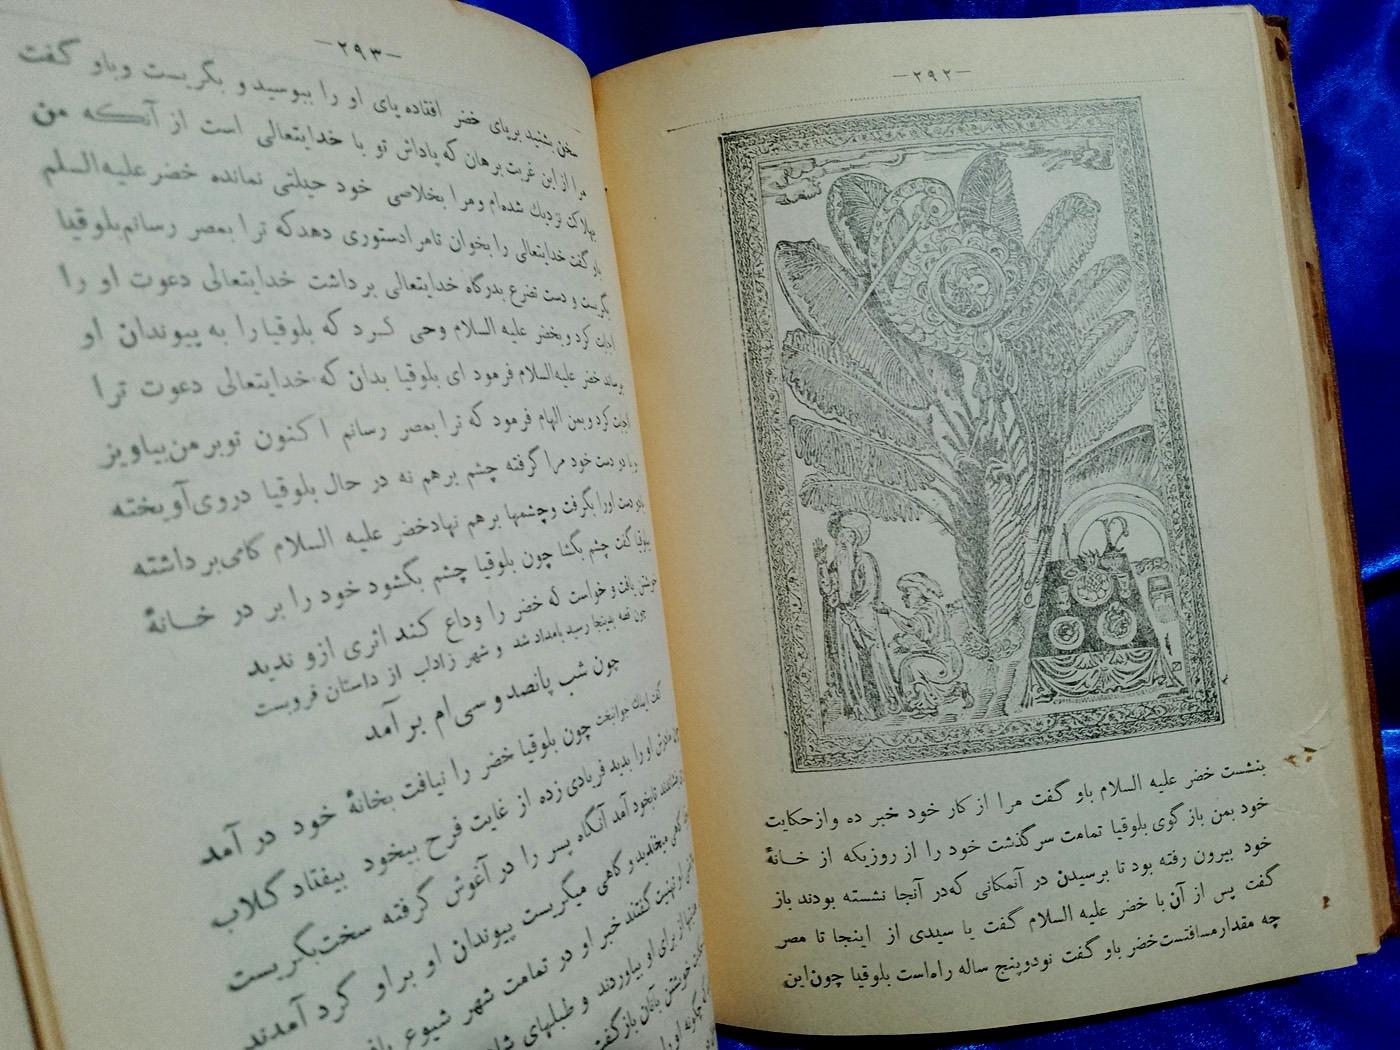 -۲۹۲-
بنشست خضر علیه السلام باو گفت مرا از کار خود خبر ده وازحکایت
خود بمن باز گوی بلوقیا تمامت سرگذشت خود را از روزیکه از خانهٔ
خود بیرون رفته بود تا برسیدن در آنمکانی که‌در آنجا نشسته بودند باز
گفت پس از آن با خضر علیه السلام گفت یا سیدی از اینجا تا مصر
چه مقدارمسافتست‌خضر باو گفت نودوپنج ساله راه‌است بلوقیا چون‌این
-۲۹۳-
سخن بشنید برپای خضر افتاده پای او را ببوسید و بگریست وباو گفت
مرا از این غربت برهان که پاداش تو با خدایتعالی است از آنکه من
بهلاکت نزدیك شده‌ام ومرا بخلاصی خود حیلتی نمانده خضر علیه‌السلم
باو گفت خدایتعالی را بخوان تامرا دستوری دهدکه ترا بمصر رسانم‌بلوقیا
بگریست و دست تضرع بدرگاه خدایتعالی برداشت خدایتعالی دعوت او را
اجابت کرد و بخضر علیه السلام وحی کرد که بلوقیا را به پیوندان او
خضر علیه‌السلام فرمود ای بلوقیا بدان که خدایتعالی دعوت ترا
اجابت کرد وبمن الهام فرمود که ترا بمصر رسانم اکنون توبرمن‌بیاویز
دست خود مرا گرفته چشم برهم نه در حال بلوقیا دروی‌آویخته
دست اورا بگرفت وچشمها برهم نهادخضر علیه السلام گامی‌برداشته
بلوقیا گفت چشم بگشا چون بلوقیا چشم بگشود خود را بر در خانهٔ
خویش یافت و خواست که خضر را وداع کند اثری ازو ندید
چون قصه بدینجا رسید بامداد شد و شهر زادلب از داستان فروبست
چون شب پانصد و سی‌ام برآمد
گفت ایملك جوانبخت چون بلوقیا خضر را نیافت بخانهٔ خود در آمد
مادرش او را بدید فریادی زده از غایت فرح بیخود بیفتاد گلاب
تابخود آمد آنگاه پسر را در آغوش گرفته سخت‌بگریست
گاهی میخندید و گاهی میگریست پیوندان او براو گرد آمدند
و تهنیت گفتند خبر او در تمامت شهر شیوع
از برای او بیاوردند و طبلهای
خویشتن بآنان بازگفت
چگونه او را